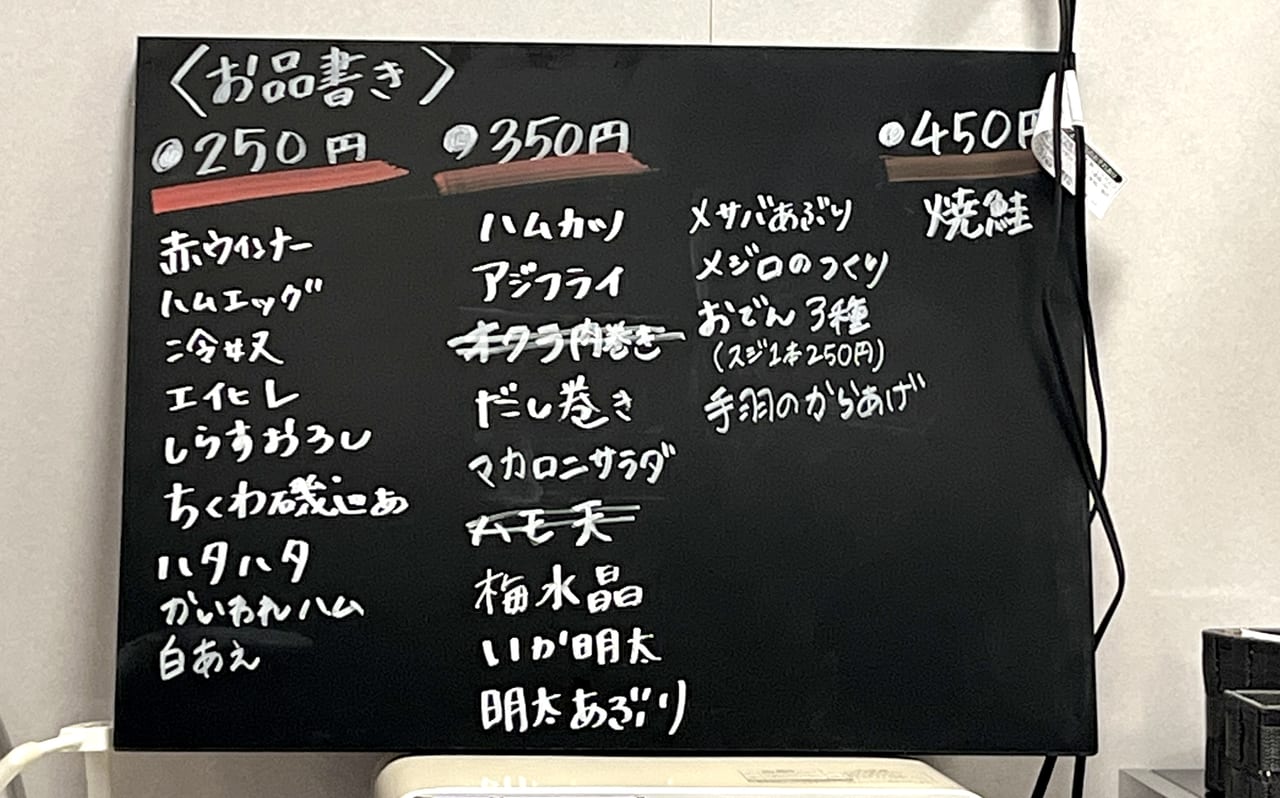 〈お品書き〉
●250円
赤ウィンナー
ハムエッグ
冷奴
エイヒレ
しらすおろし
ちくわ磯辺あ
ハタハタ
かいわれハム
白あえ
●350円
ハムカツ
アジフライ
オクラ肉巻き
だし巻き
マカロニサラダ
ハモ天
梅水晶
いか明太
明太あぶり
メサバあぶり
メジロのつくり
おでん3種
(スジ1本250円)
手羽のからあげ
●450円
焼鮭